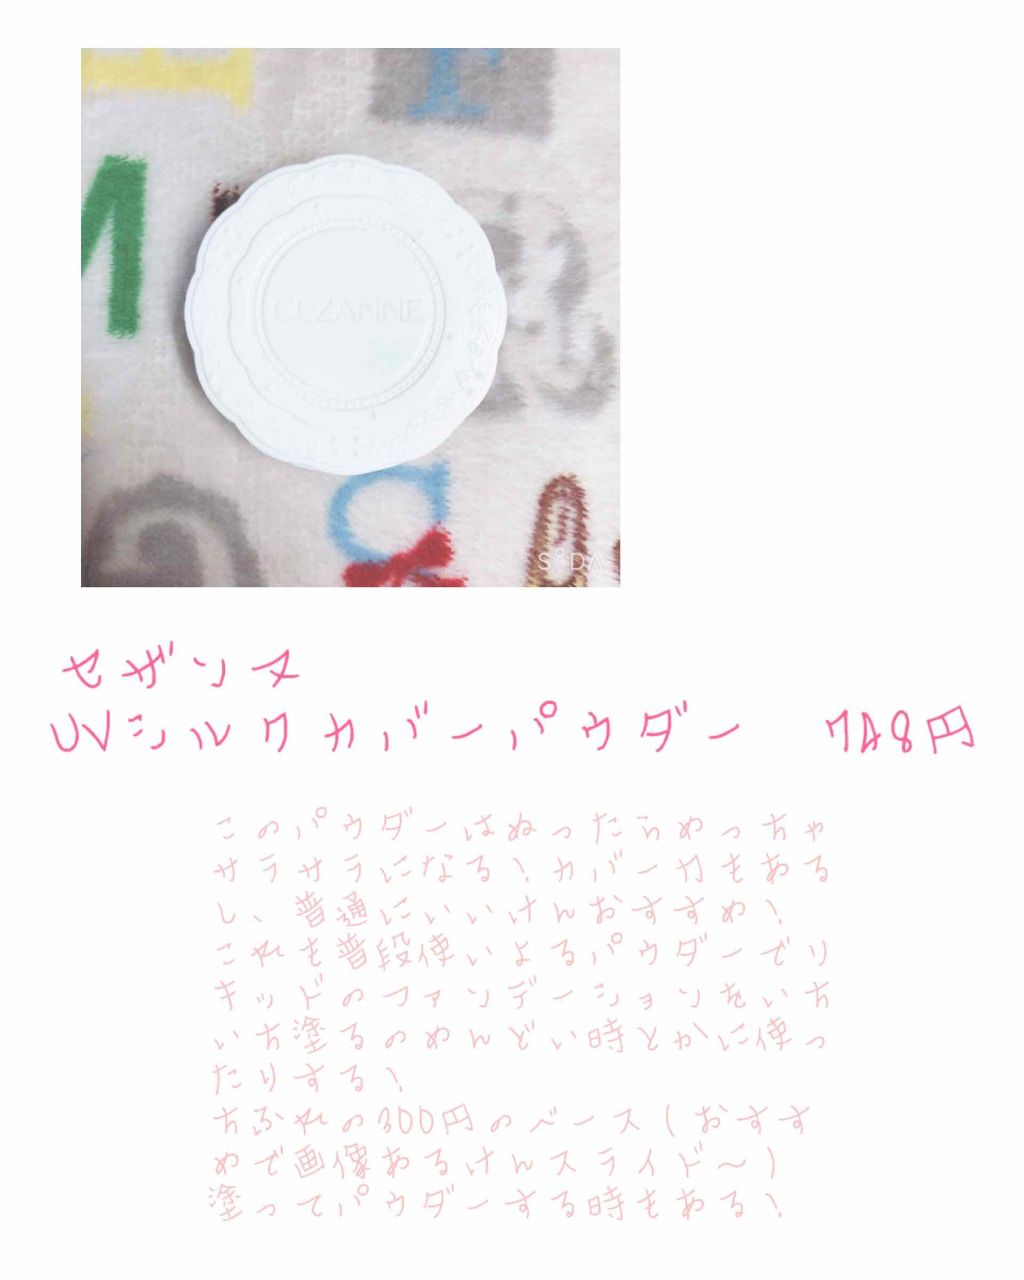 CEZANNE
S°DA
セザンヌ
UVシルクカバーパウダー 748円
このパウダーはぬったらめっちゃ
サラサラになる！カバー力もある
し、普通にいいけんおすすめ！
これも普段使いよるパウダーでリ
キッドのファンデーションをいち
いち塗るのめんどい時とかに使っ
たりする！
ちふれの300円のベース(おすす
めで画像あるけんスライド〜)
塗ってパウダーする時もある！